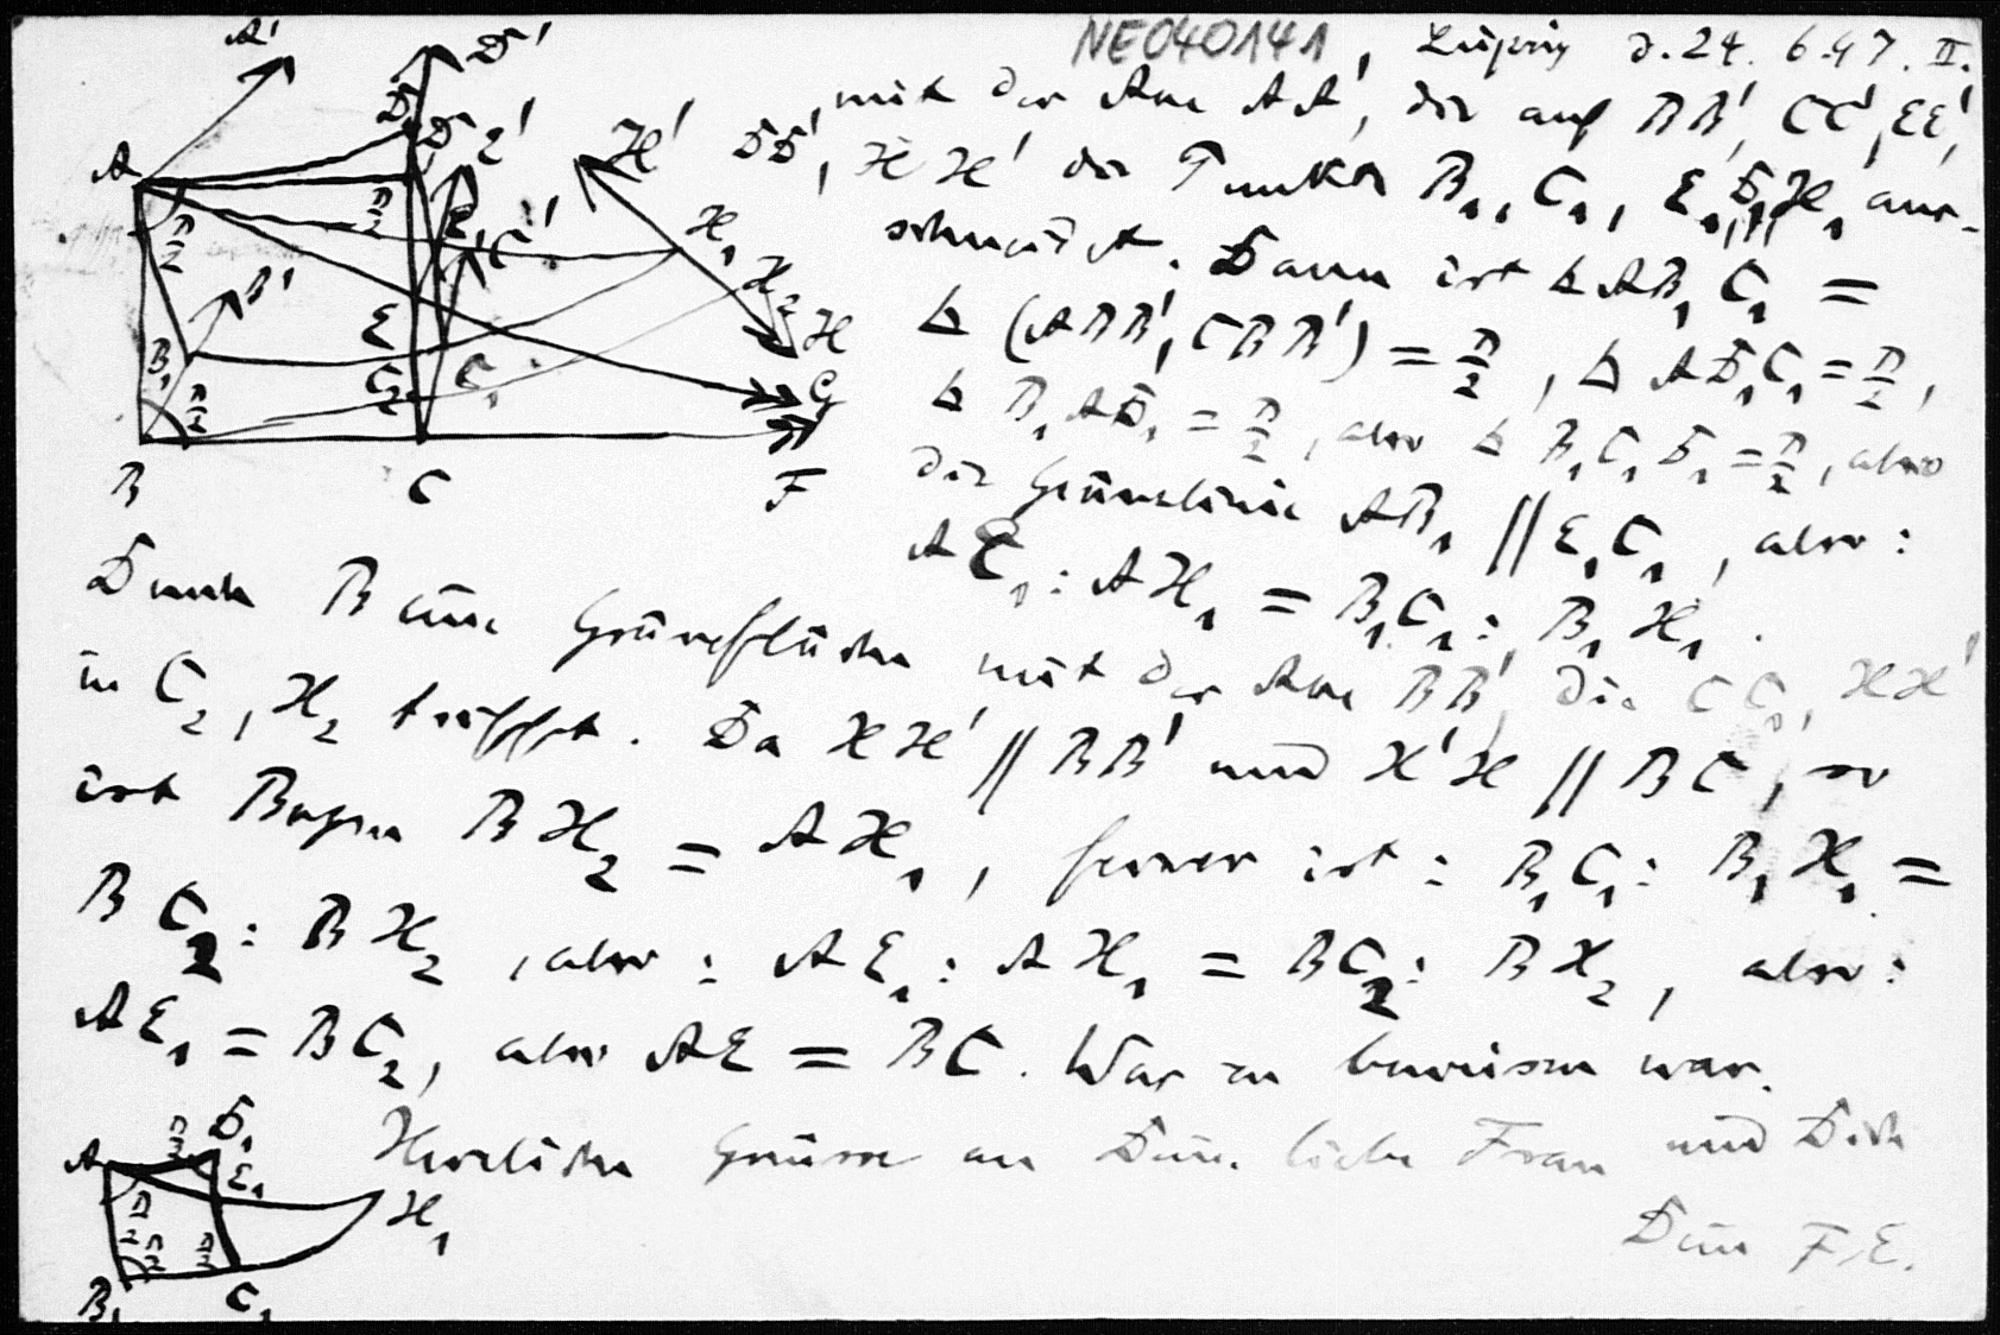 NE040141, Leipzig d. 24. 6. 47. II.
mit der Axe AA', die auf BB', CC', EE',
DD', HH' die Punkte B₁, C₁, E₁, D₁, H₁ aus-
schneidet. Dann ist ∡ AB₁C₁ =
∡ (ABB', CBB') = π/2, ∡ AD₁C₁ = π/2,
∡ B₁AD₁ = π/2, also ∡ B₁C₁D₁ = π/2, also
die Grenzlinie AB₁ ∥ E₁C₁, also:
AE₁ : AH₁ = B₁C₁ : B₁H₁.
Durch B eine Grenzfläche mit der Axe BB', die CC', HH'
in C₂, H₂ trifft. Da HH' ∥ BB' und H'H ∥ BC, so
ist Bogen BH₂ = AH₁, ferner ist: B₁C₁ : B₁H₁ =
BC₂ : BH₂, also: AE₁ : AH₁ = BC₂ : BH₂, also:
AE₁ = BC₂, also AE = BC. Was zu beweisen war.
Herzliche Grüsse an Deine liebe Frau und Dich
Dein F. E.
A'
D'
D
D₁
E'
H'
A
π/2
π/2
E₁
C'
H₁
B'
H₂
B₁
E
H
C₂
C₁
G
π/2
B
C
F
π/2
D₁
A
E₁
H₁
π/2
π/2
π/2
B₁
C₁